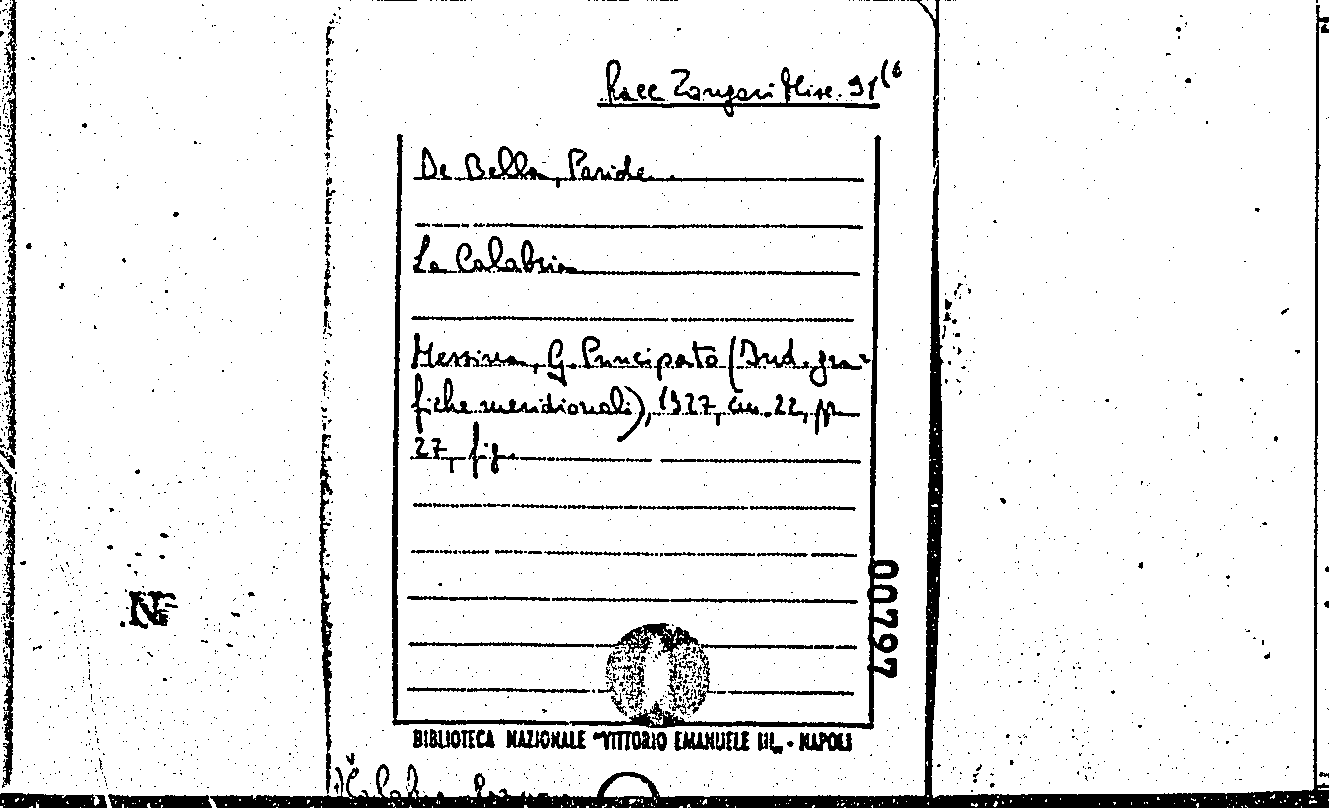 Racc Zangari Misc. 91(6
De Bella, Paride.
La Calabria
Messina, G. Principato (Ind. gra=
fiche meridionali), 1927, cm. 22, pp.
27, fig.
00797
BIBLIOTECA NAZIONALE "VITTORIO EMANUELE III„ - NAPOLI